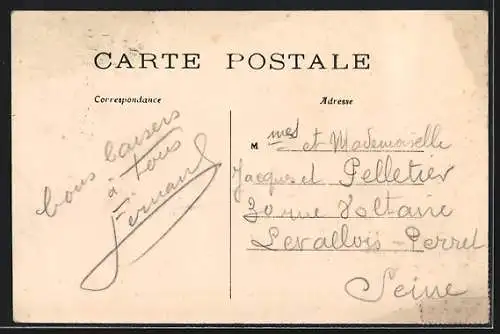 CARTE POSTALE
Correspondance
Adresse
bons baisers
à tous
Fernand
M mes et Mademoiselle
Jacques et Pelletier
30 rue Voltaire
Levallois-Perret
Seine